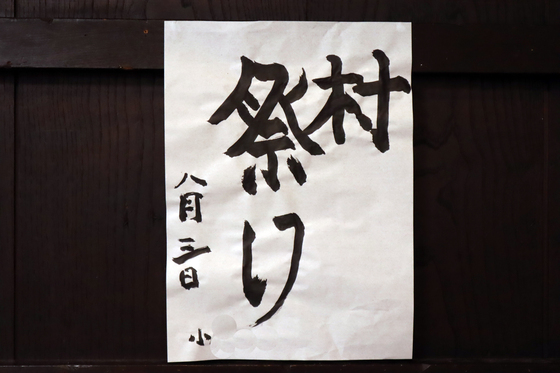 村
祭り
八月三日 小